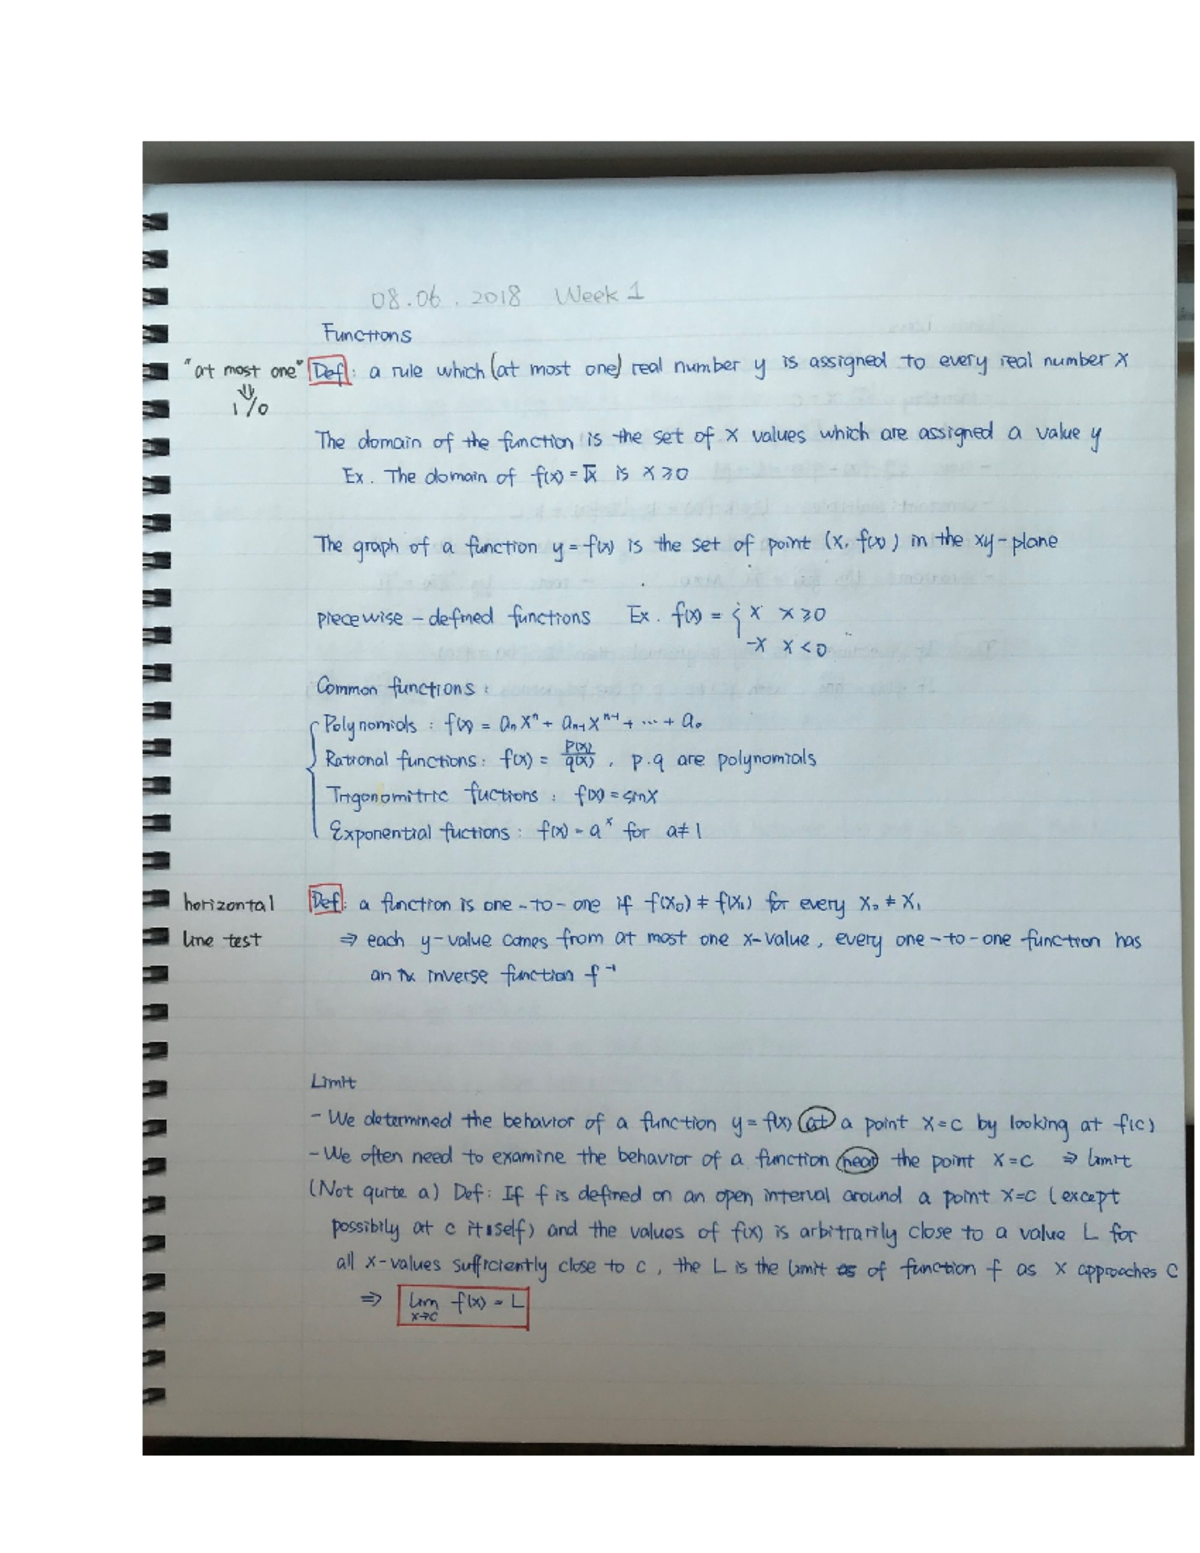 08.06.2018 Week 1
Functions
"at most one" Def: a rule which (at most one) real number y is assigned to every real number x
⇓
1/0
The domain of the function is the set of x values which are assigned a value y
Ex. The domain of f(x) = √x is x ≥ 0
The graph of a function y = f(x) is the set of point (x, f(x)) in the xy-plane
piecewise-defined functions Ex. f(x) = { x x ≥ 0
-x x < 0
Common functions:
Polynomials: f(x) = aₙxⁿ + aₙ₋₁xⁿ⁻¹ + ... + a₀
Rational functions: f(x) = p(x)/q(x), p.q are polynomials
Trigonomitric fuctions: f(x) = sinx
Exponential fuctions: f(x) = aˣ for a ≠ 1
horizontal Def: a function is one-to-one if f(x₀) ≠ f(x₁) for every x₀ ≠ x₁
line test ⇒ each y-value comes from at most one x-value, every one-to-one function has
an inverse function f⁻¹
Limit
- We determined the behavior of a function y = f(x) at a point x=c by looking at f(c)
- We often need to examine the behavior of a function near the point x=c ⇒ limit
(Not quite a) Def: If f is defined on an open interval around a point x=c (except
possibily at c itself) and the values of f(x) is arbitrarily close to a value L for
all x-values sufficiently close to c, the L is the limit of function f as x approaches c
⇒ lim f(x) = L
x→c